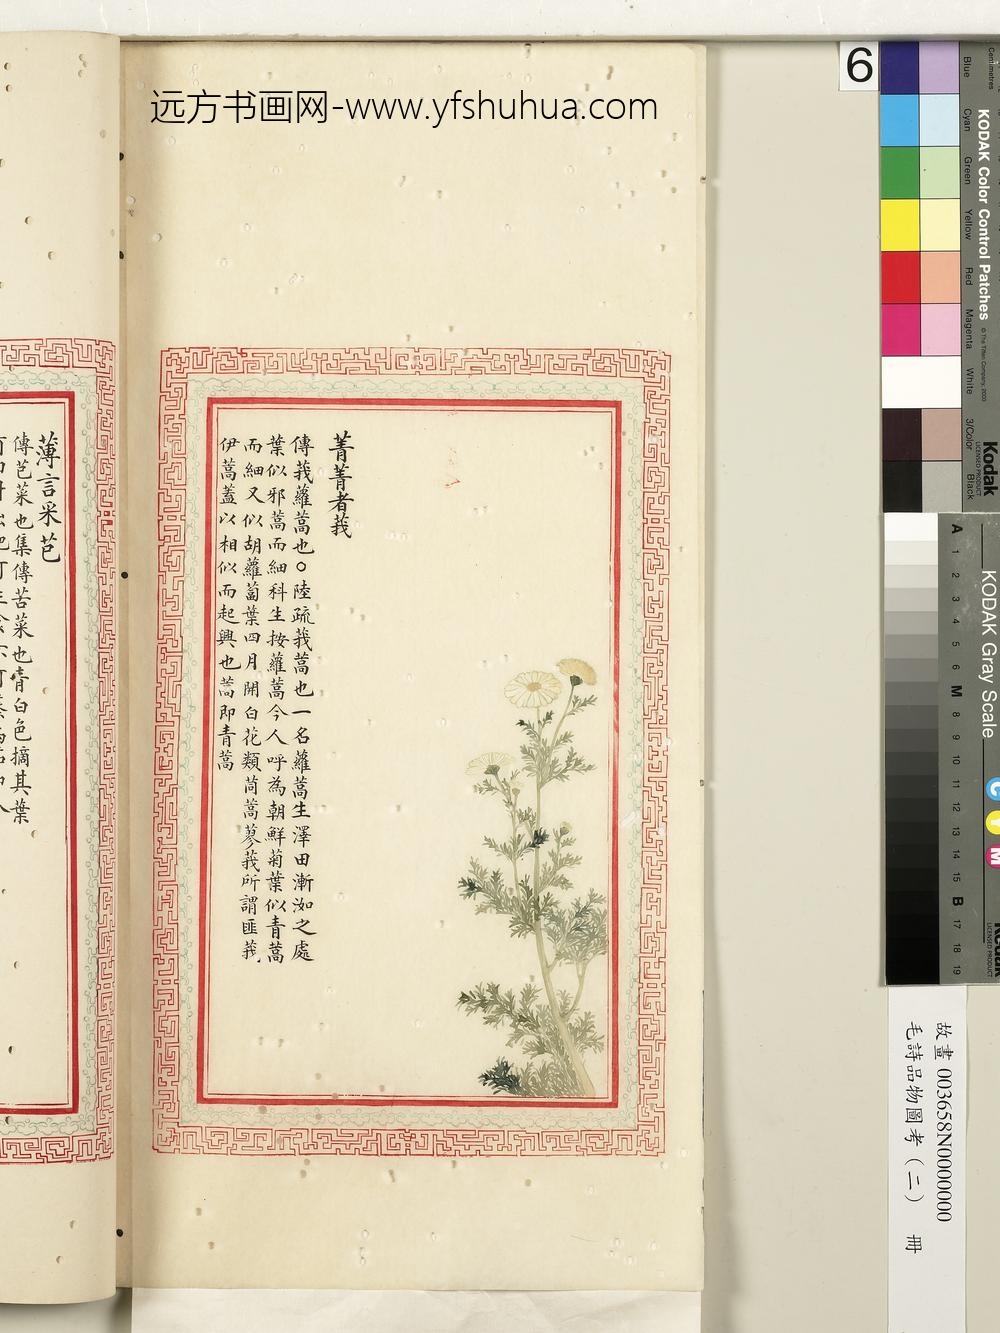 远方书画网-www.yfshuhua.com
菁菁者莪
傳莪蘿蒿也○陸疏莪蒿也一名蘿蒿生澤田漸洳之處
葉似邪蒿而細科生按蘿蒿今人呼為朝鮮菊葉似青蒿
而細又似胡蘿蔔葉四月開白花類茼蒿蓼莪所謂匪莪
伊蒿蓋以相似而起興也蒿即青蒿
薄言采芑
傳芑菜也集傳苦菜也青白色摘其葉
6
Centimetres
Blue
Cyan
Green
Yellow
Red
Magenta
White
3/Color
Black
KODAK Color Control Patches
© The Tiffen Company, 2000
Kodak
LICENSED PRODUCT
KODAK Gray Scale
A 1 2 3 4 5 6 M 8 9 10 11 12 13 14 15 B 17 18 19
C
Y
M
Kodak
LICENSED PRODUCT
故畫 003658N0000000
毛詩品物圖考（二） 冊